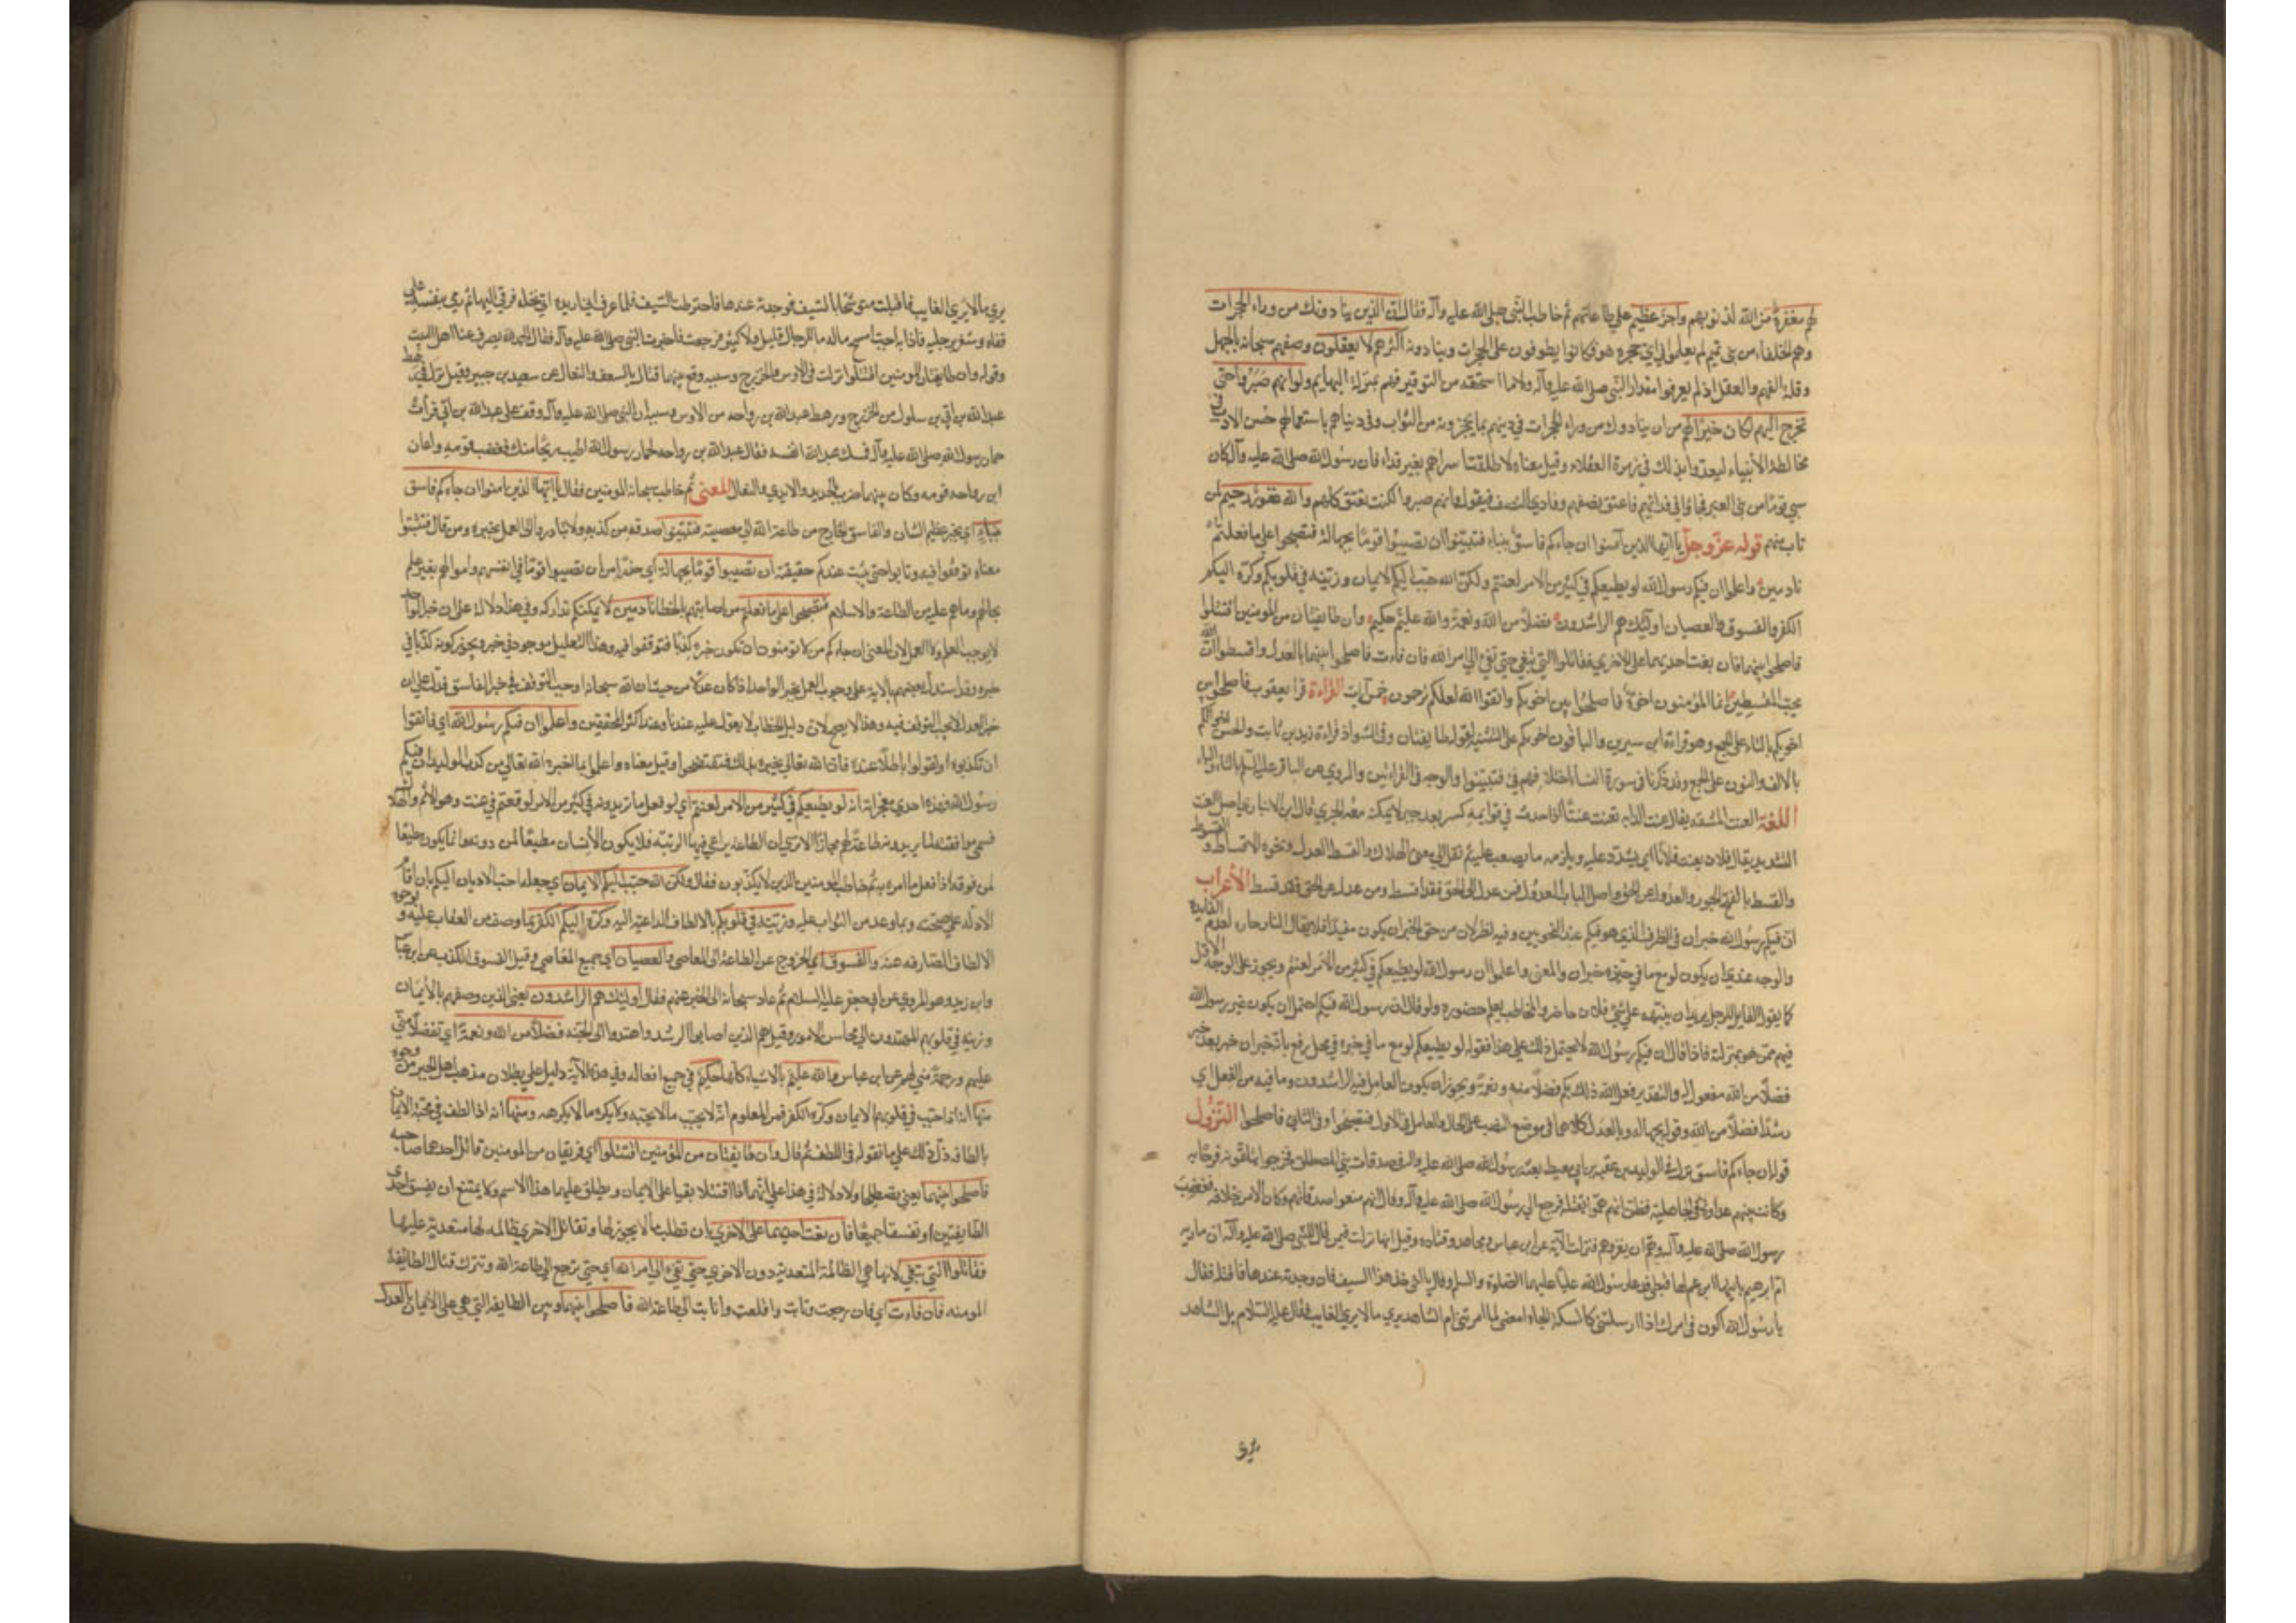 لهم مغفرة من الله لذنوبهم واجر عظيم علي طاعاتهم ثم خاطب النبي صلي الله عليه وآله فقال ان الذين ينادونك من وراء الحجرات
وهم الجفاة من بني تميم لم يعلموا في اي حجرة هو فكانوا يطوفون علي الحجرات وينادونه اكثرهم لا يعقلون وصفهم سبحانه بالجهل
وقلة الفهم والعقل اذ لم يعرفوا مقدار النبي صلي الله عليه وآله ولا ما استحقه من التوقير فهم بمنزلة البهايم ولو انهم صبروا حتي
تخرج اليهم لكان خيرا لهم من ان ينادوك من وراء الحجرات في دينهم بما يحرزونه من الثواب وفي دنياهم باستعمالهم حسن الادب في
مخاطبة الأنبياء ليعدوا بذلك في زمرة العقلاء وقيل معناه لاطلقت اسراهم بغير فداء فان رسول الله صلي الله عليه وآله كان
سبي قوما من بني العنبر فجاؤا في فدائهم فاعتق نصفهم وفادي النصف فيقول ولو انهم صبروا لكنت تعتق كلهم والله غفور رحيم لمن
تاب منهم قوله عز وجل يا ايها الذين آمنوا ان جاءكم فاسق بنباء فتبينوا ان تصيبوا قوما بجهالة فتصبحوا علي ما فعلتم
نادمين واعلموا ان فيكم رسول الله لو يطيعكم في كثير من الامر لعنتم ولكن الله حبب اليكم الايمان وزينه في قلوبكم وكره اليكم
الكفر والفسوق والعصيان اوليك هم الراشدون فضلا من الله ونعمة والله عليم حكيم وان طايفتان من المومنين اقتتلوا
فاصلحوا بينهما فان بغت احديهما علي الاخري فقاتلوا التي تبغي حتي تفئ الي امر الله فان فاءت فاصلحوا بينهما بالعدل واقسطوا ان الله
يحب المقسطين انما المؤمنون اخوة فاصلحوا بين اخويكم واتقوا الله لعلكم ترحمون خمس آيات القراءة قرا يعقوب فاصلحوا بين
اخوتكم بالتاء علي الجمع وهو قراءة ابن سيرين والباقون اخويكم علي التثنية لقوله طايفتان وفي الشواذ قراءة زيد بن ثابت والحسن اخوانكم
بالالف والنون علي الجمع وقد ذكرنا في سورة النساء اختلافهم في فتبينوا والوجه في القراءتين والمروي عن الباقر عليه السلم بالثاء والتاء
اللغة العنت المشقة يقال عنت الدابه تعنت عنتا اذا حدث في قوايمه كسر بعد جبر لا يمكنه معه الجري قال ابن الانباري اصل العنت
التشديد يقال فلان يعنت فلانا اي يشدد عليه ويلزمه ما يصعب عليه ثم نقل الي معني الهلاك والقسط العدل ونحوه الاقساط
والقسط بالفتح الجور والعدول عن الحق واصل الباب العدول فمن عدل الي الحق فقد اقسط ومن عدل عن الحق فقد قسط الأعراب
ان فيكم رسول الله خبر ان في الظرف الذي هو فيكم عند النحويين وفيه نظر لان من حق الخبر ان يكون مفيدا فلا يقال النار حارة لعدم الفايدة
والوجه عندي ان يكون لو مع ما في حيزه خبر ان والمعني واعلموا ان رسول الله لو يطيعكم في كثير من الامر لعنتم ويجوز علي الوجه الاول
كما يقول القايل للرجل يريد ان ينبهه علي شئ فلان حاضر والمخاطب يعلم حضوره ولو قال ان رسول الله فيكم احتمل ان يكون غير رسول الله
فيهم ممن هو بمنزلته فاذا قال ان فيكم رسول الله لا يحتمل ذلك علي هذا فقوله لو يطيعكم لو مع ما في خبره في محل رفع بانه خبر ان خبر بعد خبر
فضلا من الله مفعول له والتقدير فعل الله ذلك بكم فضلا منه ونعمة ويجوز ان يكون العامل فيه الراشدون وما فيه من الفعل اي
رشدوا فضلا من الله وقوله بجهالة وبالعدل كلاهما في موضع النصب علي الحال والعامل في الاول فتصيبوا وفي الثاني فاصلحوا النزول
قوله ان جاءكم فاسق نزل في الوليد بن عقبة بن ابي معيط بعثه رسول الله صلي الله عليه وآله في صدقات بني المصطلق فخرجوا يتلقونه فرحا به
وكانت بينهم عداوة في الجاهلية فظن انهم هموا بقتله فرجع الي رسول الله صلي الله عليه وآله وقال انهم منعوا صدقاتهم وكان الامر بخلافه فغضب
رسول الله صلي الله عليه وآله وهم ان يغزوهم فنزلت الآية عن ابن عباس ومجاهد وقتاده وقيل انها نزلت فيمن قال للنبي صلي الله عليه وآله ان مارية
ام ابراهيم ياتيها ابن عم لها قبطي فدعا رسول الله عليا عليهما الصلوة والسلم وقال يا اخي خذ هذا السيف فان وجدته عندها فاقتله فقال
يا رسول الله اكون في امرك اذا ارسلتني كالسكة المحماة امضي لما امرتني ام الشاهد يري ما لا يري الغايب فقال عليه السلام بل الشاهد
يري ما لا يري الغايب فاقبلت متوشحا بالسيف فوجدته عندها فاخترطت السيف فلما عرف اني اريده اتي نخلة فرقي اليها ثم رمي بنفسه علي
قفاه وشغر برجليه فاذا به اجب امسح ما له ما للرجال قليل ولا كثير فرجعت فاخبرت النبي صلي الله عليه وآله فقال الحمد لله الذي يصرف عنا اهل البيت
وقوله وان طايفتان من المومنين اقتتلوا نزلت في الاوس والخزرج وسببه وقع بينهما قتال بالسعف والنعال عن سعيد بن جبير وقيل نزل في رهط
عبد الله بن ابي بن سلول من الخزرج ورهط عبد الله بن رواحه من الاوس وسببه ان النبي صلي الله عليه وآله وقف علي عبد الله بن ابي فراث
حمار رسول الله صلي الله عليه وآله فمسك عبد الله انفه فقال عبد الله بن رواحه لحمار رسول الله اطيب ريحا منك فغضب قومه واعان
ابن رواحه قومه وكان بينهما ضرب بالجريد والايدي والنعال المعني ثم خاطب سبحانه المومنين فقال يا ايها الذين امنوا ان جاءكم فاسق
بنباء اي بخبر عظيم الشان والفاسق الخارج من طاعة الله الي معصيته فتبينوا صدقه من كذبه ولا تبادروا الي العمل بخبره ومن قال فتثبتوا
معناه توقفوا فيه وتانوا حتي يثبت عندكم حقيقته ان تصيبوا قوما بجهالة اي حذرا من ان تصيبوا قوما في انفسهم واموالهم بغير علم
بحالهم وما هم عليه من الطاعة والاسلام فتصبحوا علي ما فعلتم من اصابتهم بالخطا نادمين لا يمكنكم تداركه وفي هذا دلالة علي ان خبر الواحد
لا يوجب العلم ولا العمل لان المعني ان جاءكم من لا تومنون ان تكون خبره كذبا فتوقفوا فيه وهذا التعليل موجود في خبر ويجوز كونه كذبا في
خبره وقد استدل بعضهم بالاية علي وجوب العمل بخبر الواحد اذا كان عدلا من حيث ان الله سبحانه اوجب التوقف في خبر الفاسق فدل علي ان
خبر العدل لا يجب التوقف فيه وهذا لا يصح لان دليل الخطاب لا يعول عليه عندنا وعند اكثر المحققين واعلموا ان فيكم رسول الله اي فاتقوا
ان تكذبوه او تقولوا باطلا عنده فان الله تعالي يخبره بذلك فتفتضحوا وقيل معناه واعلموا بما اخبره الله تعالي من كذب الوليد ان فيكم
رسول الله فهذه احدي معجزاته لو يطيعكم في كثير من الامر لعنتم اي لو فعل ما تريدونه في كثير من الامر لوقعتم في عنت وهو الاثم والهلاك
فسمي موافقته لما يريدونه طاعة لهم مجازا الا تري ان الطاعة يراعي فيها الرتبه فلا يكون الأنسان مطيعا لمن دونه وانما يكون مطيعا
لمن فوقه اذا فعل ما امره به ثم خاطب المومنين الذين لا يكذبون فقال ولكن الله حبب اليكم الايمان اي جعله احب الاديان اليكم بان اقام
الادلة علي صحته وبما وعد من الثواب عليه وزينه في قلوبكم بالالطاف الداعية اليه وكره اليكم الكفر بما وصف من العقاب عليه وبوجوه
الالطاف الصارفه عنه والفسوق اي الخروج عن الطاعة الي المعاصي والعصيان اي جميع المعاصي وقيل الفسوق الكذب عن ابن عباس
وابن زيد وهو المروي عن ابي جعفر عليه السلام ثم عاد سبحانه الي الخبر عنهم فقال اوليك هم الراشدون يعني الذين وصفهم بالأيمان
وزينه في قلوبهم المهتدون الي محاسن الامور وقيل هم الذين اصابوا الرشد واهتدوا الي الجنة فضلا من الله ونعمة اي تفضلا مني
عليهم ورحمة مني لهم عن ابن عباس والله عليم بالاشياء كلها حكيم في جميع افعاله وفي هذه الآية دليل علي بطلان مذهب اهل الجبر من وجوه
منها انه اذا حبب في قلوبهم الايمان وكره الكفر فمن المعلوم انه لا يحبب ما لا يحبه ولا يكره ما لا يكرهه ومنها انه اذا الطف في تحبيب الايمان
بالطافه دل ذلك علي ما نقوله في اللطف ثم قال وان طايفتان من المؤمنين اقتتلوا اي فريقان من المومنين قاتل احدهما صاحبه
فاصلحوا بينهما يعني يصطلحا ولا دلالة في هذا علي انهما اذا اقتتلا بقيا علي الايمان ويطلق عليهما هذا الاسم ولا يمتنع ان يفسق احدي
الطايفتين او تفسقا جميعا فان بغت احديهما علي الاخري بان تطلب ما لا يجوز لها وتقاتل الاخري ظالمة لها متعدية عليها
فقاتلوا التي تبغي لانها هي الظالمة المتعدية دون الاخري حتي تفئ الي امر الله اي حتي ترجع الي طاعة الله وتترك قتال الطائفة
المومنه فان فاءت اي فان رجعت وتابت واقلعت وانابت الي طاعة الله فاصلحوا بينهما وبين الطايفة التي هي علي الايمان بالعدل